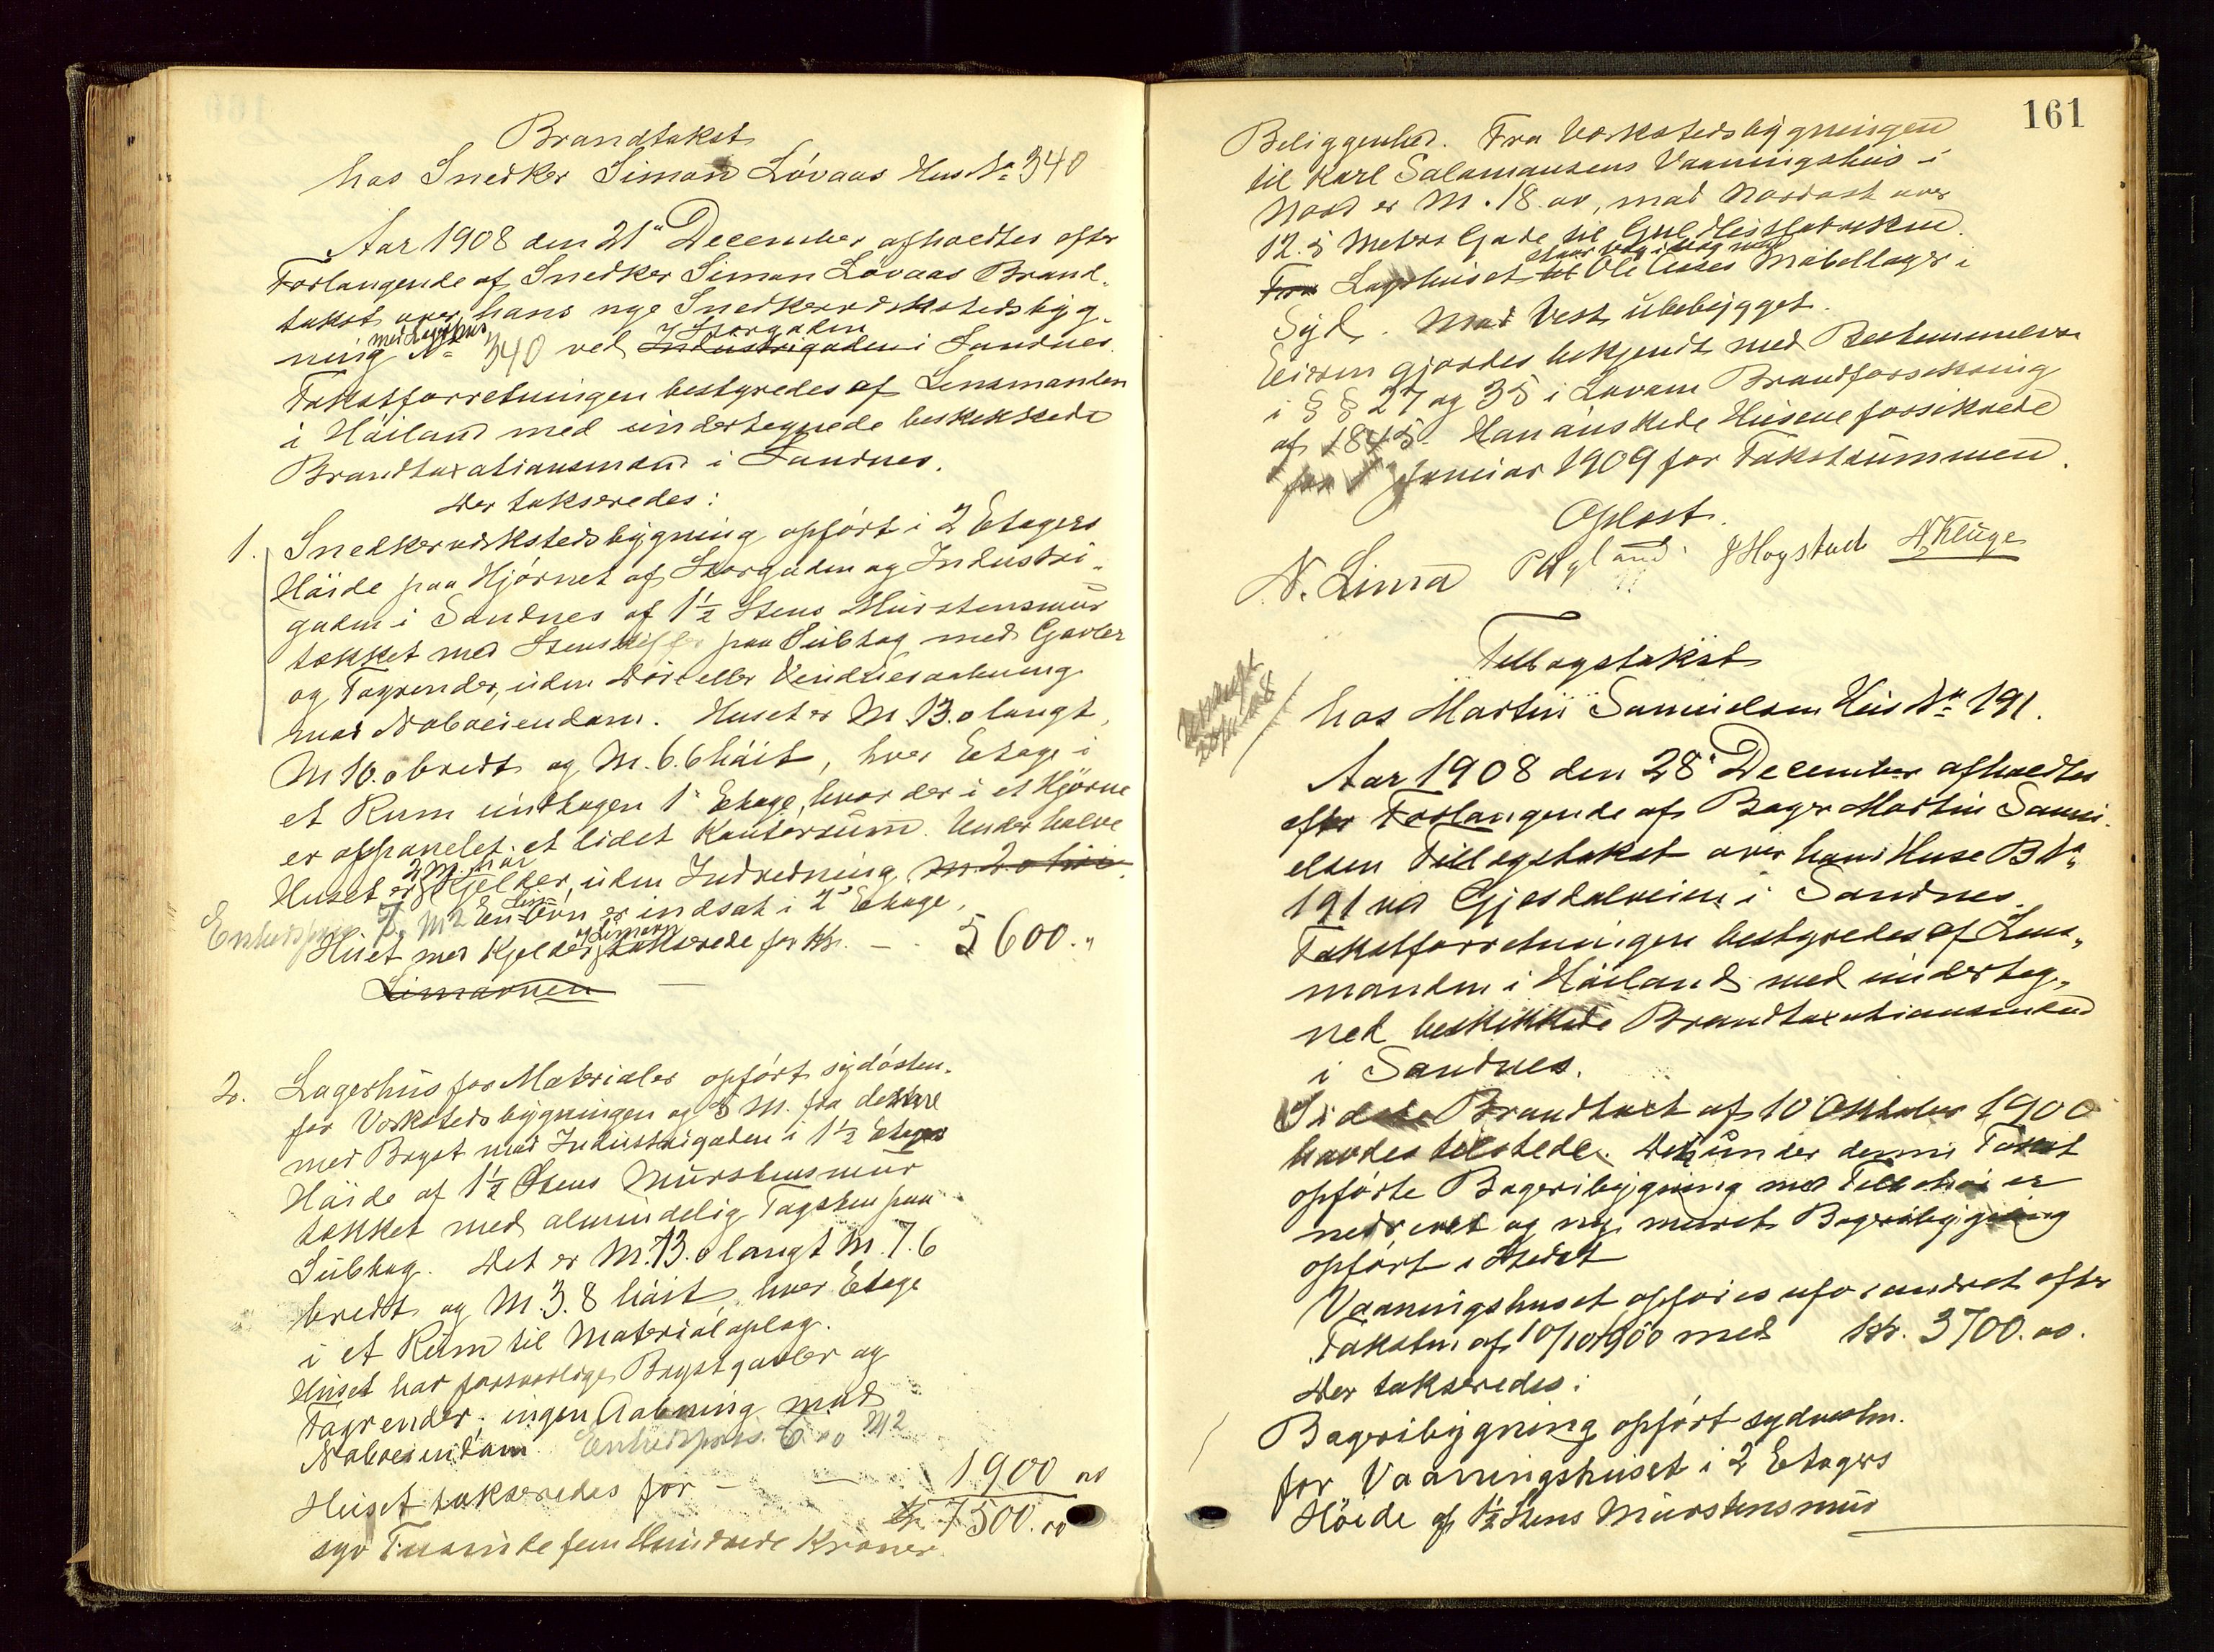 Brandtakst
hos Snedker Simon Lóvaas Hus No 340
Aar 1908 den 21" December afholdtes efter
Forlangende af Snedker Simon Lóvaas Brand-
takst over hans nye Snedkerverkstedsbyg-
med Lagerhus Storgaden
ning No 340 ved Industrigaden i Sandnes
Takstforretningen bestyredes af Lensmanden
i Höiland med undertegnede beskikkede
Brandtaxationsmænd i Sandnes.
Der takseredes:
1. Snedkerverkstedsbygning opfört i 2 Etagers
Höide paa Hjörnet af Storgaden og Industri-
gaden i Sandnes af 1½ Stens Murstensmur
tækket med Stenskifer paa Subtag med Gavler
og Tagrender, uden Dör eller Vinduesaabning
mod Naboeiendom. Huset er M. 13.0 langt,
M 10.0 bredt og M. 6.6 höit, hver Etage i
et Rum undtagen 1' Etage, hvor der i et Hjörne
er oppanelet et lidet Kontorrum. Under halve
2 M. höi
Huset er Kjelder, uden Indredning M 2.0 höi.
Lim
Enhedspris 7. M2 En Ovn er indsat i 2' Etage,
og Limovn
Huset med Kjelder takserede for Kr. — 5600."
Limovnen —
2. Lagerhus for Materialer opfört sydösten-
for Verkstedsbygningen og 5 M. fra denne
med Bryst mod Industrigaden i 1½ Etages
Höide af 1½ Stens Murstensmur
tækket med almindelig Tagsten paa
Subtag. Det er M. 13.0 langt M. 7.6
bredt og M 3.8 höit, hver Etage
i et Rum til Materialoplag.
Huset har forsvarlige Brystgavler og
Tagrender; ingen Aabning mod
Naboeiendom. Enhedspris 6.00 M2
Huset takseredes for — — 1900 00
Kr 7500.00
syv Tusinde fem Hundrede Kroner.
161
Beliggenhed. Fra Verkstedsbygningen
til Karl Salomonsens Vaaningshus i
Nord er M. 18.00, mod Nordost over
12.5 Meters Gade til Guldlistfabrikken.
støer væg i væg med
Fra Lagerhuset til Ole Aases Möbellager i
Syd. Mod Vest ubebygget.
Eieren gjordes bekjendt med Bestemmelserne
i §§ 27 og 35 i Loven Brandforsikring
af 1845. Han önskede Husene forsikrede
fra 1' Januar 1909 for Takstsummen.
Oplæst.
N. Lima J Hogstad N. Kluge
Tillægstakst
hos Martin Samuelsen Hus No 191.
Aar 1908 den 28' December afholdtes
efter Forlangende af Bager Martin Samu-
elsen Tillægstakst over hans Huse B No
191 ved Gjesdalveien i Sandnes.
Takstforretningen bestyredes af Lens-
manden i Höiland med underteg-
ned beskikkede Brandtaxationsmænd
i Sandnes.
Sidste Brandtaxt af 10 Oktober 1900
havdes tilstede. Det under denne Takst
opförte Bageribygning med Tilbehör er
nedrevet og ny muret Bageribygning
opfört i Stedet
Vaaningshuset opföres uforandret efter
Taksten af 10/10 1900 med Kr. 3700.00.
Der takseredes:
Bageribygning opfört sydvesten-
for Vaaningshuset i 2 Etagers
Höide af 1½ Stens Murstensmur